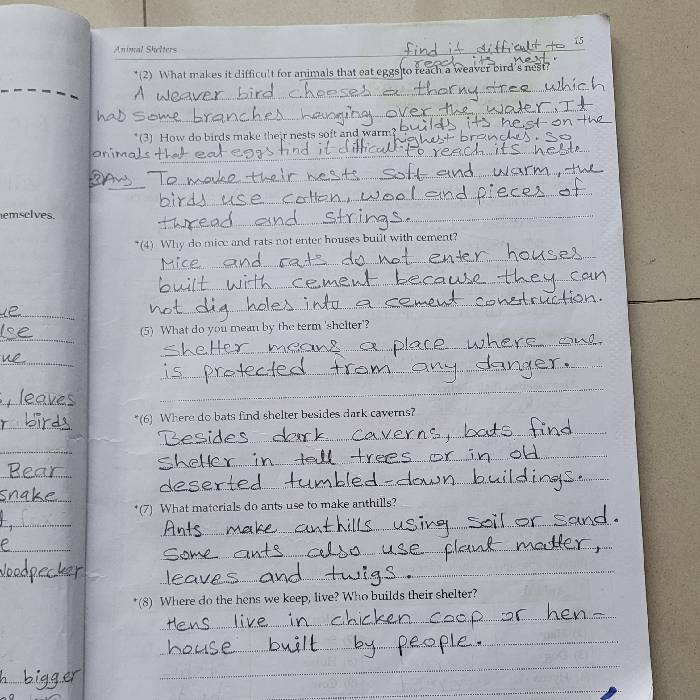 Animal Shelters
15
find it difficult to
reach its nest.
*(2) What makes it difficult for animals that eat eggs to reach a weaver bird's nest?
A weaver bird chooses a thorny tree which
has some branches hanging over the water. It
builds its nest on the
*(3) How do birds make their nests soft and warm?
highest branches. So
animals that eat eggs find it difficult to reach its nests.
3 Ans To make their nests soft and warm, the
birds use cotton, wool and pieces of
thread and strings.
*(4) Why do mice and rats not enter houses built with cement?
Mice and rats do not enter houses
built with cement because they can
not dig holes into a cement construction.
(5) What do you mean by the term 'shelter'?
Shelter means a place where one
is protected from any danger.
*(6) Where do bats find shelter besides dark caverns?
Besides dark caverns, bats find
shelter in tall trees or in old
deserted tumbled-down buildings.
*(7) What materials do ants use to make anthills?
Ants make anthills using soil or sand.
Some ants also use plant matter,
leaves and twigs.
*(8) Where do the hens we keep, live? Who builds their shelter?
Hens live in chicken coop or hen-
house built by people.
emselves.
ue
lse
ue
s, leaves
r birds
Bear
snake
e
Woodpecker
h bigger